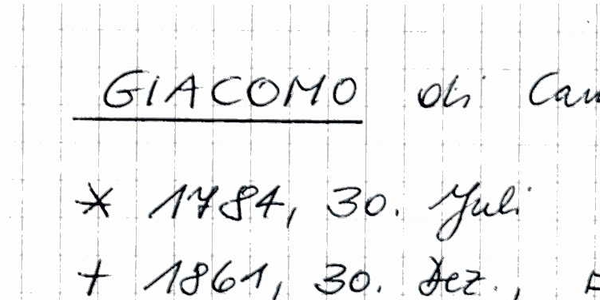 GIACOMO di
* 1784, 30. Juli
+ 1861, 30. Dez.,